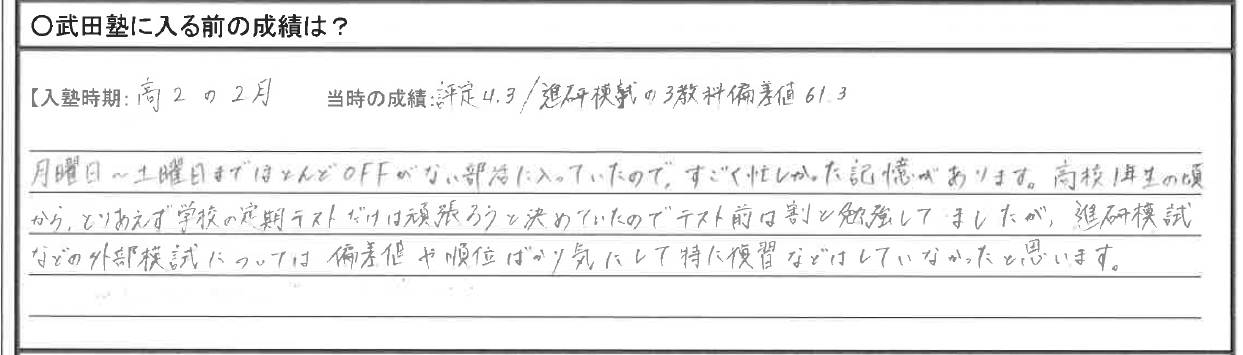 〇武田塾に入る前の成績は？
【入塾時期:高2の2月 当時の成績:評定4.3/進研模試の3教科偏差値61.3
月曜日～土曜日までほとんどOFFがない部活に入っていたので、すごく忙しかった記憶があります。高校1年生の頃
から、とりあえず学校の定期テストだけは頑張ろうと決めていたのでテスト前は割と勉強してましたが、進研模試
などの外部模試については偏差値や順位ばかり気にして特に復習などはしていなかったと思います。